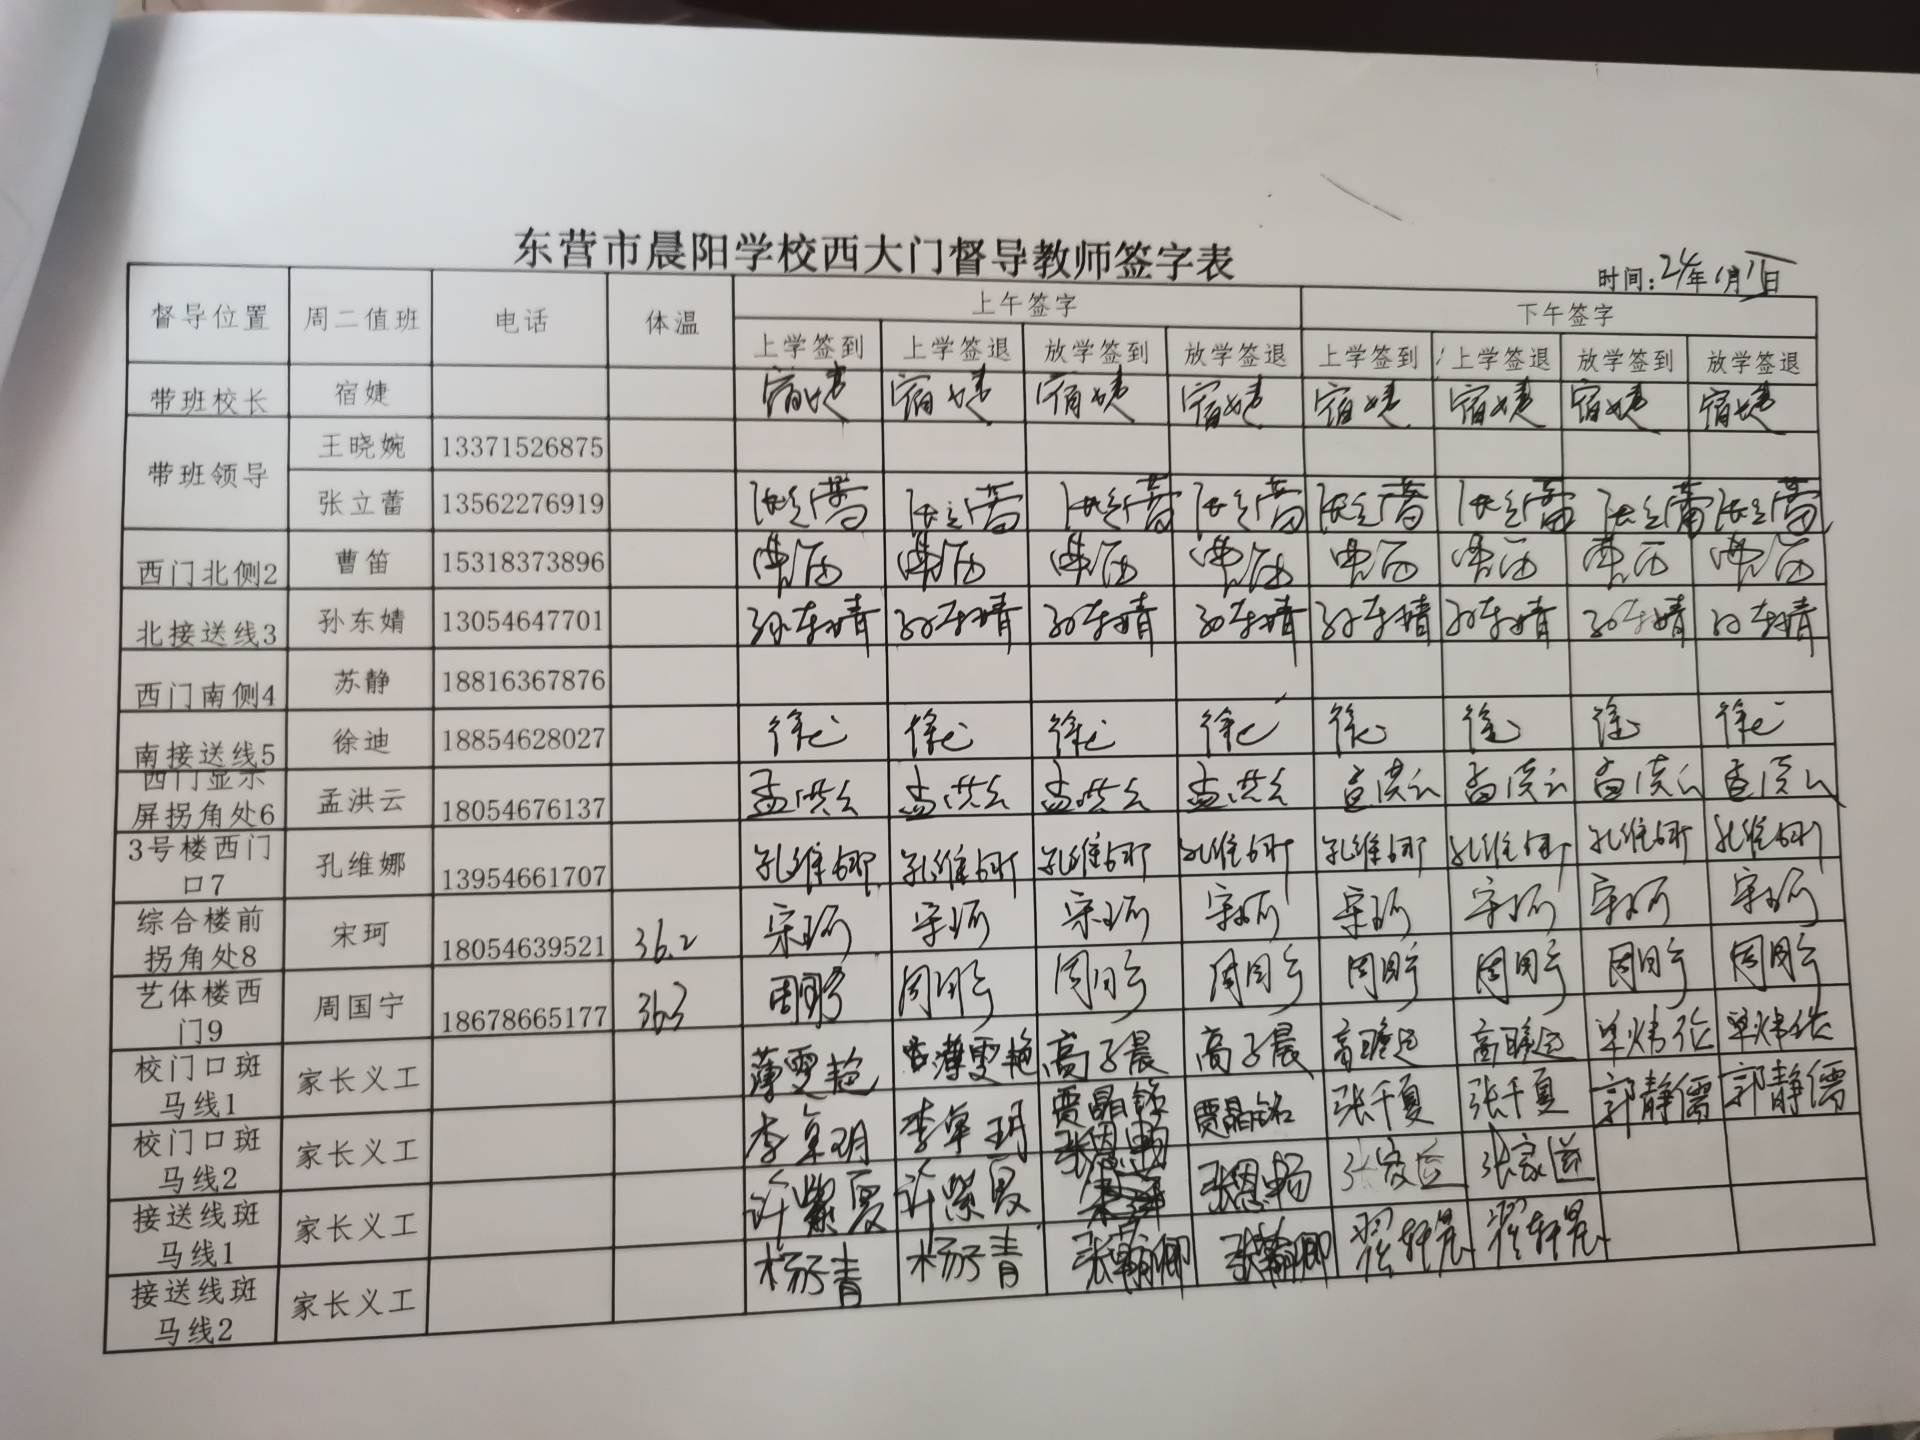 东营市晨阳学校西大门督导教师签字表
时间：24年1月 日
督导位置 周二值班 电话 体温 上午签字 下午签字
上学签到 上学签退 放学签到 放学签退 上学签到 上学签退 放学签到 放学签退
带班校长 宿婕 宿婕 宿婕 宿婕 宿婕 宿婕 宿婕 宿婕 宿婕
带班领导
王晓婉 13371526875
张立蕾 13562276919 张立蕾 张立蕾 张立蕾 张立蕾 张立蕾 张立蕾 张立蕾 张立蕾
西门北侧2 曹笛 15318373896
北接送线3 孙东婧 13054647701 孙东婧 孙东婧 孙东婧 孙东婧 孙东婧 孙东婧 孙东婧 孙东婧
西门南侧4 苏静 18816367876
南接送线5 徐迪 18854628027 徐迪 徐迪 徐迪 徐迪 徐迪 徐迪 徐迪 徐迪
西门显示
屏拐角处6 孟洪云 18054676137 孟洪云 孟洪云 孟洪云 孟洪云 孟洪云 孟洪云 孟洪云 孟洪云
3号楼西门
口7 孔维娜 13954661707 孔维娜 孔维娜 孔维娜 孔维娜 孔维娜 孔维娜 孔维娜 孔维娜
综合楼前
拐角处8 宋珂 18054639521 36.2 宋珂 宋珂 宋珂 宋珂 宋珂 宋珂 宋珂 宋珂
艺体楼西
门9 周国宁 18678665177 36.3 周国宁 周国宁 周国宁 周国宁 周国宁 周国宁 周国宁 周国宁
校门口斑
马线1 家长义工 薄雯艳 薄雯艳 高子晨 高子晨
校门口斑
马线2 家长义工 李卓玥 李卓玥 贾晶铭 贾晶铭 张千夏 张千夏 郭静儒 郭静儒
接送线斑
马线1 家长义工 许紫夏 许紫夏 张恩畅 张恩畅
接送线斑
马线2 家长义工 杨子青 杨子青 张翰卿 张翰卿 翟轩晨 翟轩晨